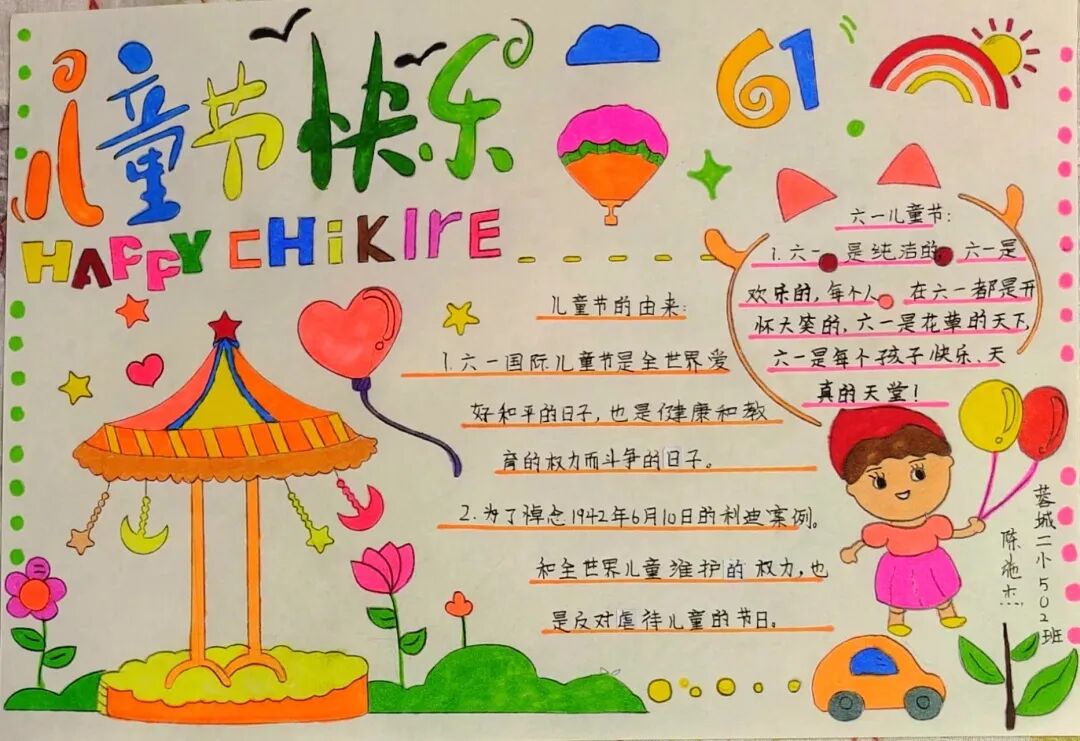 儿童节快乐
61
HAPPY CHiKIrE
六一儿童节:
1.六一 是纯洁的, 六一是
欢乐的,每个人 在六一都是开
怀大笑的,六一是花草的天下,
六一是每个孩子快乐、天
真的天堂!
儿童节的由来:
1.六一国际儿童节是全世界爱
好和平的日子,也是健康和教
育的权力而斗争的日子。
2.为了悼念1942年6月10日的利迪案例。
和全世界儿童维护的权力,也
是反对虐待儿童的节日。
蓉城二小502班